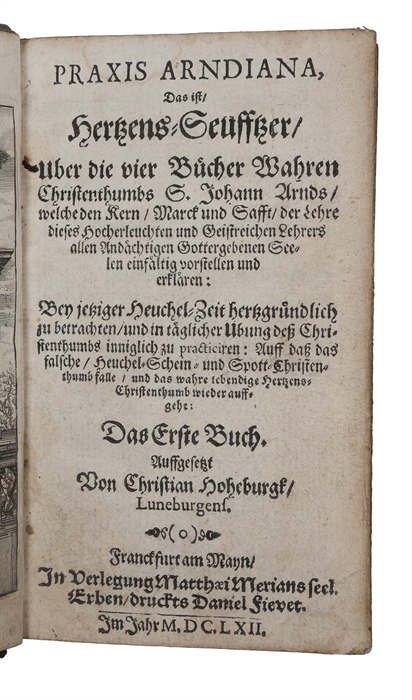 PRAXIS ARNDIANA,
Das ist/
Hertzens-Seufftzer/
Uber die vier Bücher Wahren
Christenthumbs S. Johann Arnds/
welche den Kern/ Marck und Safft/ der Lehre
dieses Hocherleuchten und Geistreichen Lehrers
allen Andächtigen Gottergebenen See-
len einfältig vorstellen und
erklären:
Bey jetziger Heuchel-Zeit hertzgründlich
zu betrachten/ und in täglicher Ubung deß Chri-
stenthumbs inniglich zu practiciren: Auff daß das
falsche/ Heuchel-Schein- und Spott-Christen-
thumb falle/ und das wahre lebendige Hertzens-
Christenthumb wieder auff-
gehe:
Das Erste Buch.
Auffgesetzt
Von Christian Hoheburgk/
Luneburgens.
(o)
Franckfurt am Mayn/
In Verlegung Matthæi Merians seel.
Erben/ druckts Daniel Fievet.
Im Jahr M. DC. LXII.